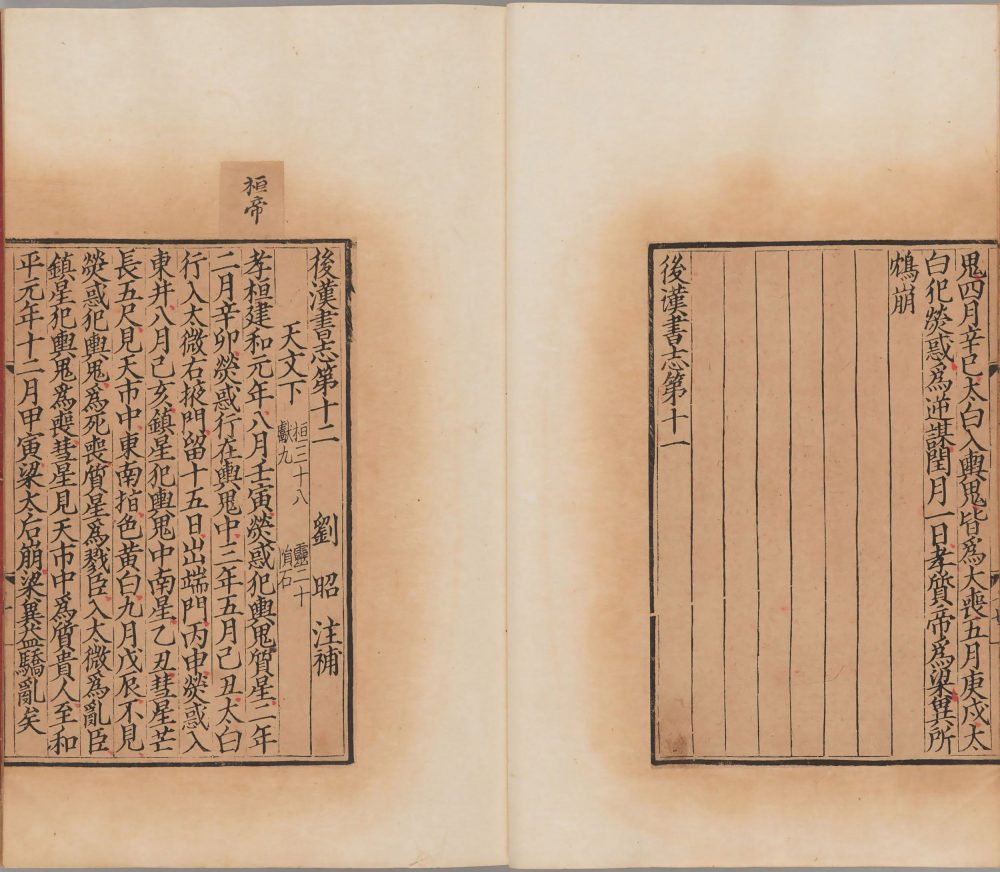 鬼四月辛巳太白入輿鬼皆爲大喪五月庚戌太
白犯熒惑爲逆謀閏月一日孝質帝爲梁冀所
鴆崩
後漢書志第十一
桓帝
後漢書志第十二
劉昭注補
天文下
桓三十八
靈二十
獻九
隕石
孝桓建和元年八月壬寅熒惑犯輿鬼質星二年
二月辛卯熒惑行在輿鬼中三年五月己丑太白
行入太微右掖門留十五日出端門丙申熒惑入
東井八月己亥鎮星犯輿鬼中南星乙丑彗星芒
長五尺見天市中東南指色黃白九月戊辰不見
熒惑犯輿鬼爲死喪質星爲戮臣入太微爲亂臣
鎮星犯輿鬼爲喪彗星見天市中爲質貴人至和
平元年十二月甲寅梁太后崩梁冀益驕亂矣